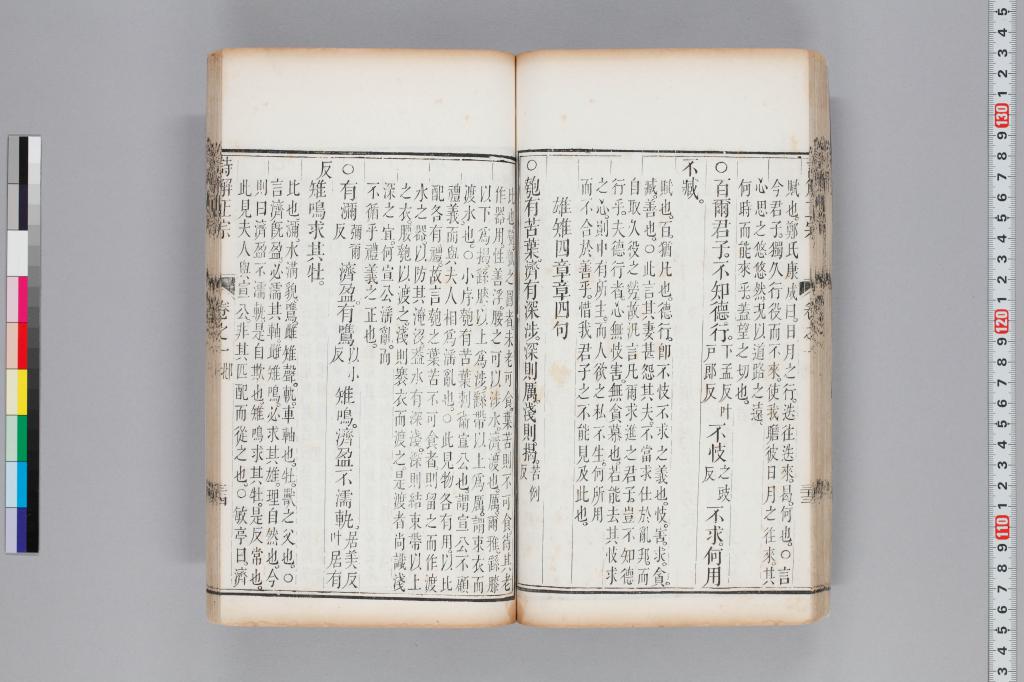 賦也鄭氏康成曰日月之行迭往迭來曷何也○言
今君子獨久行役而不來使我瞻彼日月之往來其
心思之悠悠然況以道路之遠
何時而能來乎蓋望之切也
○百爾君子不知德行下孟反叶戸郎反不忮之豉反不求何用
不臧
賦也百猶凡也德行卽不忮不求之義也忮害求貪
臧善也○此言其妻甚怨其夫不當求仕於亂邦而
自取久役之勞故汎言凡爾求進之君子豈不知德
行乎夫德行者心無忮害無貪慕也若能去其忮求
之心則中有所主而人欲之私不生何所用
而不合於善乎惜我君子之不能見及此也
雄雉四章章四句
○匏有苦葉濟有深涉深則厲淺則揭苦例反
比也匏瓠之圓者未老可食葉苦則不可食待其老
作器用性善浮腰之可以涉水濟渡也厲爾雅繇膝
以下爲揭繇膝以上爲涉繇帶以上爲厲謂束衣而
渡水也○小序匏有苦葉刺衞宣公也謂宣公不顧
禮義而與夫人相爲淫亂也○此見物各有用以比
配各有禮故言匏之葉苦不可食者則留之而作渡
水之器以防其淹沒蓋水有深淺深則結束帶以上
之衣腰匏以渡之淺則褰衣而渡之是渡者尚識淺
深之宜何宣公淫亂而
不循乎禮義之正也
○有瀰彌爾反濟盈有鷕以小反雉鳴濟盈不濡軌居美反叶居有
反雉鳴求其牡
比也瀰水滿貌鷕雌雉聲軌車軸也牡獸之父也○
言濟旣盈必濡其軸雌雉鳴必求其雄理自然也今
則曰濟盈不濡軌是自欺也雉鳴求其牡是反常也
此見夫人與宣公非其匹配而從之也○敏亭曰濟
詩解正宗
卷之一邶